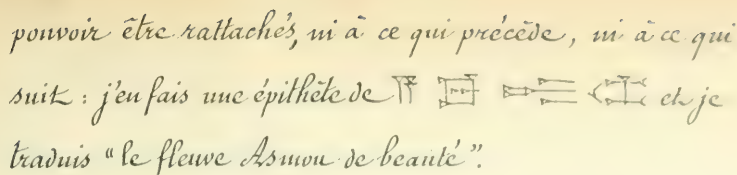 pouvoir être rattachés, ni à ce qui précède, ni à ce qui
suit : j'en fais une épithète de et je
traduis "le fleuve Asmou de beauté".